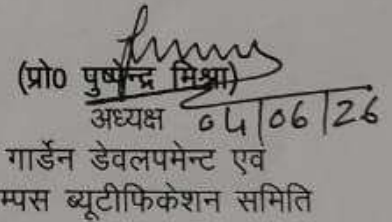 (प्रो० पुष्पेन्द्र मिश्रा)
अध्यक्ष 04/06/26
गार्डेन डेवलपमेन्ट एवं
म्पस ब्यूटीफिकेशन समिति